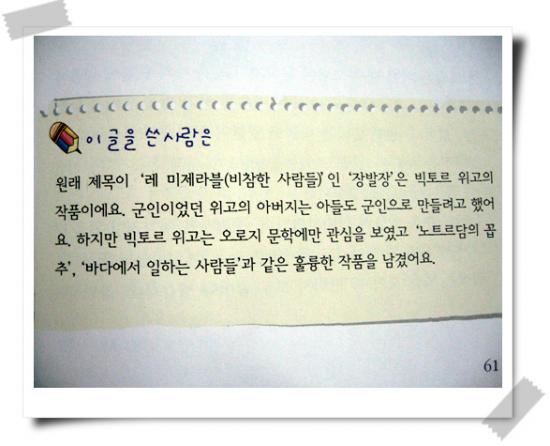 이 글을 쓴 사람은
원래 제목이 ‘레 미제라블(비참한 사람들)’인 ‘장발장’은 빅토르 위고의
작품이에요. 군인이었던 위고의 아버지는 아들도 군인으로 만들려고 했어
요. 하지만 빅토르 위고는 오로지 문학에만 관심을 보였고 ‘노트르담의 꼽
추’, ‘바다에서 일하는 사람들’과 같은 훌륭한 작품을 남겼어요.
61